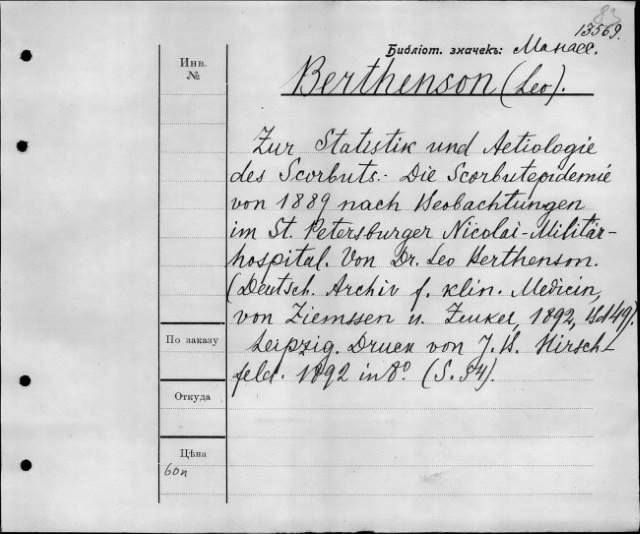 13569.
Библіот. значекъ: Манасс.
Инв.
№
Berthenson (Leo).
Zur Statistik und Aetiologie
des Scorbuts.- Die Scorbutepidemie
von 1889 nach Beobachtungen
im St. Petersburger Nicolai-Militär-
hospital. Von Dr. Leo Berthenson.
(Deutsch. Archiv f. klin. Medicin,
von Ziemssen u. Zenker, 1892, Bd 49).
Leipzig. Druck von J. B. Hirsch-
feld. 1892 in 8° (S. 54).
По заказу
Откуда
Цѣна
60к